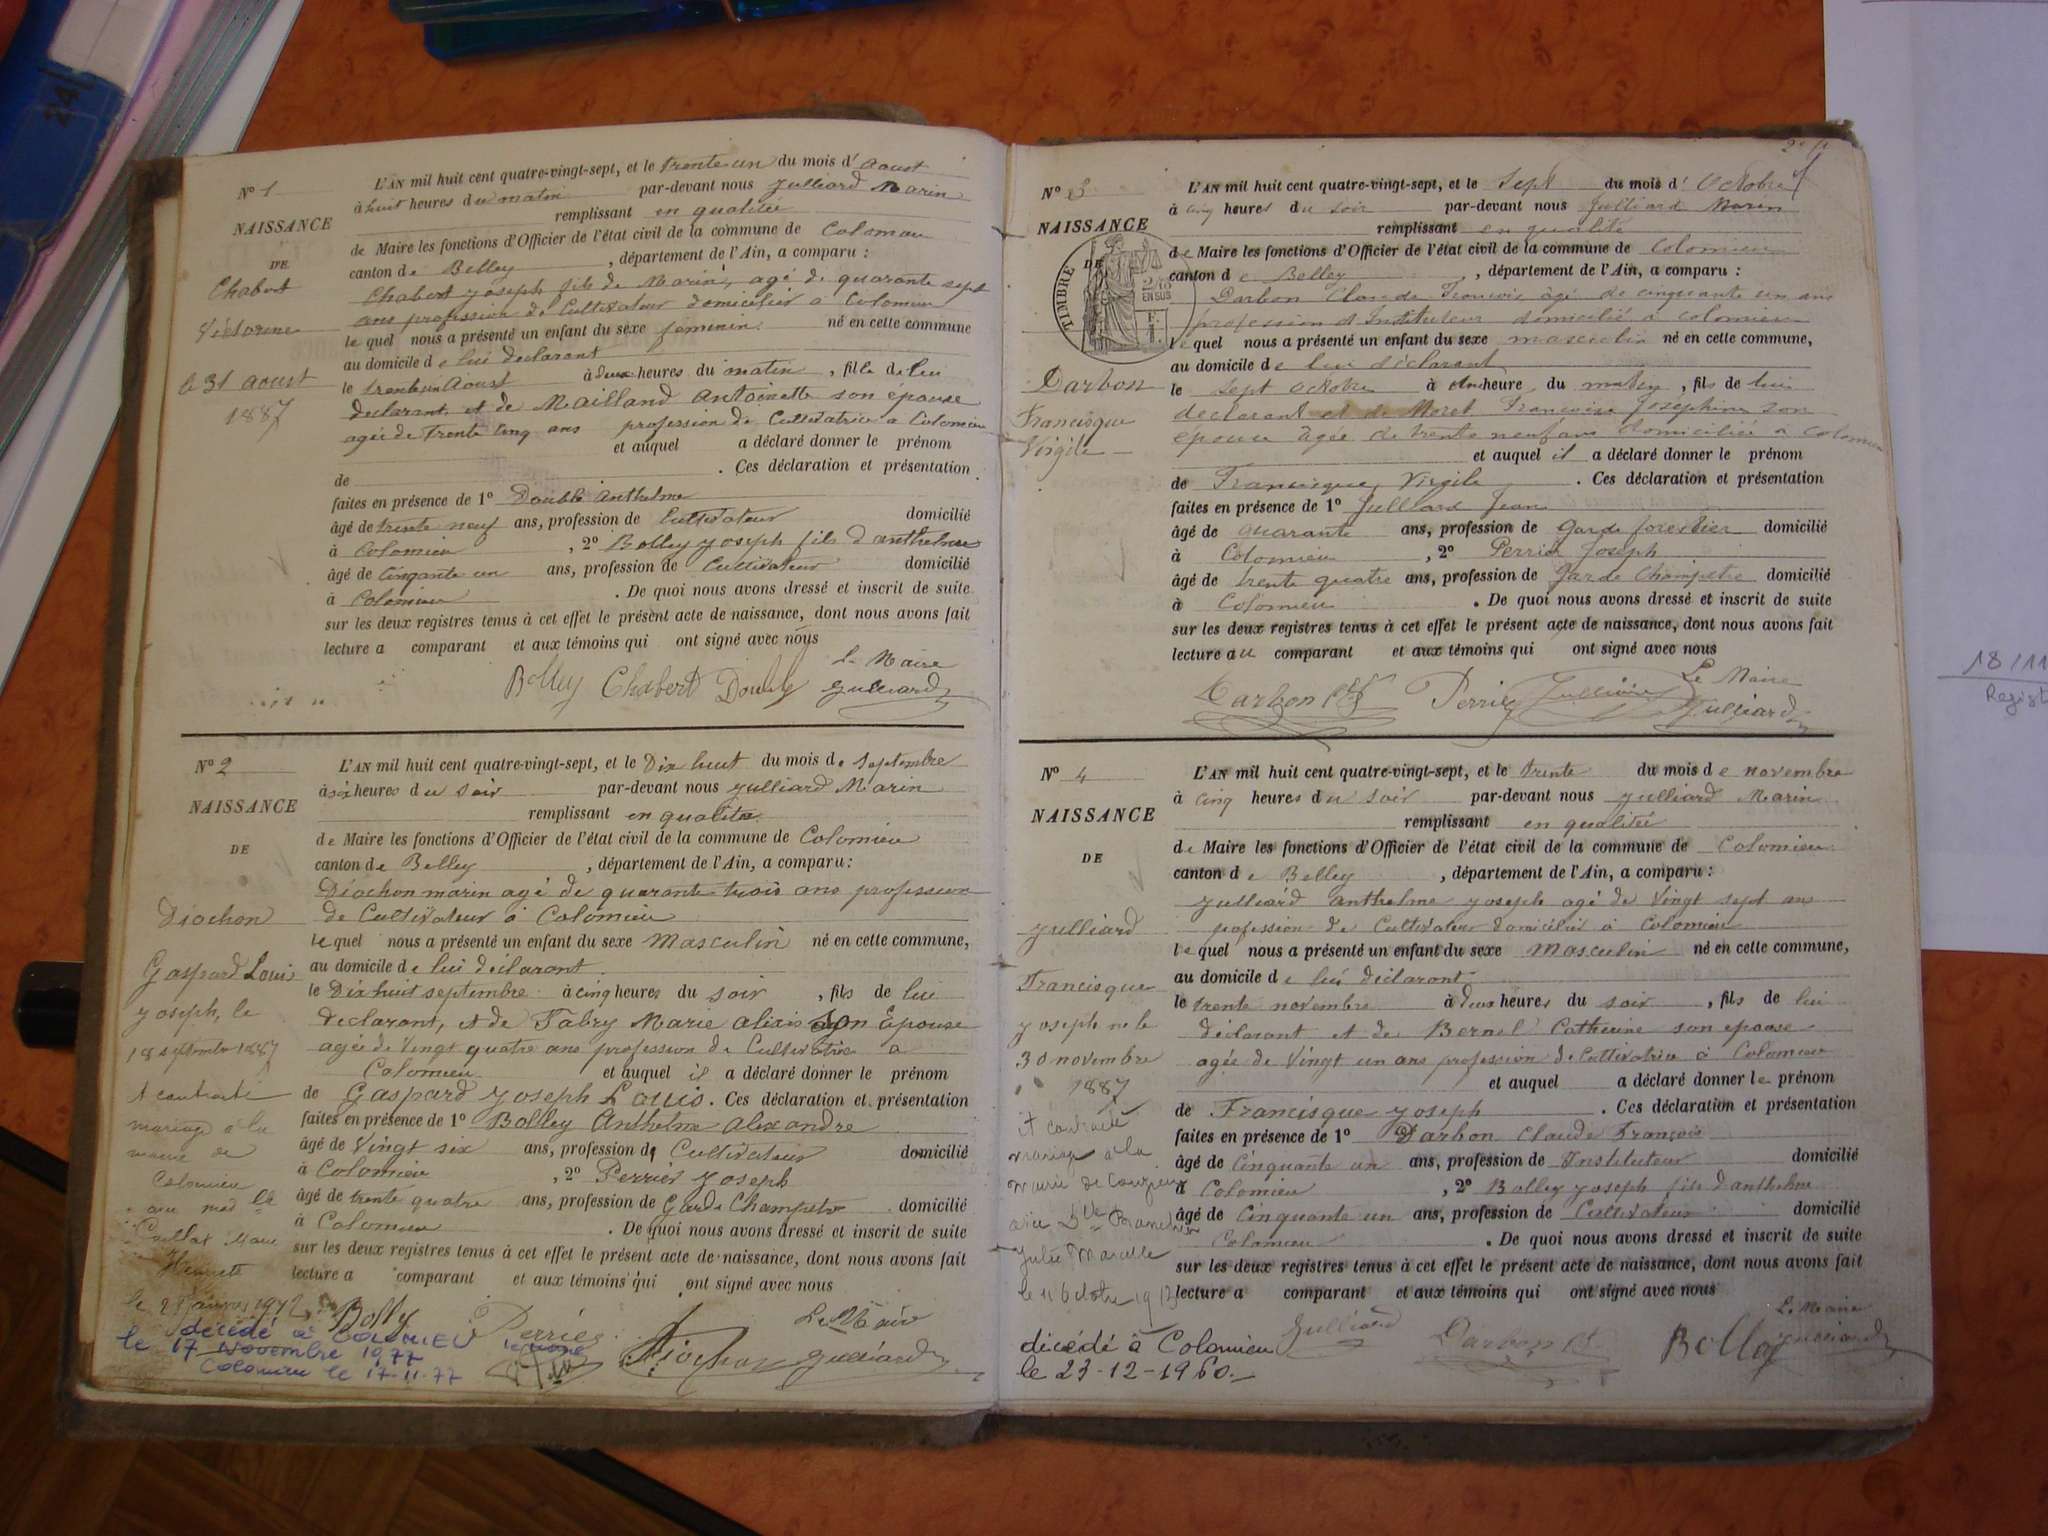 N° 1
NAISSANCE
DE
Chabert
Victorine
le 31 aoust
1887
L'AN mil huit cent quatre-vingt-sept, et le trente un du mois d' aoust
à huit heures du matin par-devant nous Julliard Marin
remplissant en qualitée
de Maire les fonctions d'Officier de l'état civil de la commune de Colomieu
canton de Belley, département de l'Ain, a comparu :
Chabert Joseph fils de Marin, agé de quarante sept
ans profession de Cultivateur domicilié a Colomieu
le quel nous a présenté un enfant du sexe féminin né en cette commune
au domicile de lui declarant
le trente un Aoust à deux heures du matin, fille de lui
declarant et de Mailland Antoinette son épouse
agée de Trente cinq ans profession de Cultivatrice a Colomieu
et auquel a déclaré donner le prénom
de . Ces déclaration et présentation
faites en présence de 1° Double Anthelme
âgé de trente neuf ans, profession de Cultivateur domicilié
à Colomieu, 2° Bolley Joseph fils d anthelme
âgé de Cinqante un ans, profession de Cultivateur domicilié
à Colomieu. De quoi nous avons dressé et inscrit de suite
sur les deux registres tenus à cet effet le présent acte de naissance, dont nous avons fait
lecture a comparant et aux témoins qui ont signé avec nous
Le Maire
Bolley Chabert Double Julliard
N° 2
NAISSANCE
DE
Diochon
Gaspard Louis
Joseph, le
18 septembre 1887
A contracté
mariage à la
mairie de
Colomieu
avec Melle
Marie
Henriette
le 28 janvier 1912
décédé à COLOMIEU
le 17 Novembre 1977
Colomieu le 17.11.77
L'AN mil huit cent quatre-vingt-sept, et le Dix huit du mois de Septembre
à six heures du soir par-devant nous Julliard Marin
remplissant en qualitée
de Maire les fonctions d'Officier de l'état civil de la commune de Colomieu
canton de Belley, département de l'Ain, a comparu :
Diochon marin agé de quarante trois ans profession
de Cultivateur à Colomieu
le quel nous a présenté un enfant du sexe Masculin né en cette commune,
au domicile de lui déclarant
le Dix huit septembre à cinq heures du soir, fils de lui
declarant, et de Fabry Marie alixis son Epouse
agée de Vingt quatre ans profession de Cultivatrice a
Colomieu et auquel il a déclaré donner le prénom
de Gaspard Joseph Louis. Ces déclaration et présentation
faites en présence de 1° Bolley Anthelme alexandre
âgé de Vingt six ans, profession de Cultivateur domicilié
à Colomieu, 2° Perrier Joseph
âgé de trente quatre ans, profession de Garde Champetre domicilié
à Colomieu. De quoi nous avons dressé et inscrit de suite
sur les deux registres tenus à cet effet le présent acte de naissance, dont nous avons fait
lecture a comparant et aux témoins qui ont signé avec nous
Bolley Perrier Le Maire
Diochon Julliard
N° 3
NAISSANCE
DE
TIMBRE
2/10
EN SUS
Darbon
Francisque
Virgile
L'AN mil huit cent quatre-vingt-sept, et le Sept du mois d' Octobre
à cinq heures du soir par-devant nous Julliard Marin
remplissant en qualité
de Maire les fonctions d'Officier de l'état civil de la commune de Colomieu
canton de Belley, département de l'Ain, a comparu :
Darbon Claude François âgé de cinquante un ans
profession d'Instituteur domicilié à Colomieu
le quel nous a présenté un enfant du sexe masculin né en cette commune,
au domicile de lui déclarant
le sept Octobre à heure du matin, fils de lui
déclarant et de Moret Françoise Joséphine son
épouse âgée de trente neuf ans domiciliée à Colomieu
et auquel il a déclaré donner le prénom
de Francisque Virgile. Ces déclaration et présentation
faites en présence de 1° Julliard Jean
âgé de quarante ans, profession de Garde forestier domicilié
à Colomieu, 2° Perrier Joseph
âgé de trente quatre ans, profession de Garde Champetre domicilié
à Colomieu. De quoi nous avons dressé et inscrit de suite
sur les deux registres tenus à cet effet le présent acte de naissance, dont nous avons fait
lecture au comparant et aux témoins qui ont signé avec nous
Le Maire
Darbon Perrier Julliard Julliard
N° 4
NAISSANCE
DE
Julliard
Francisque
Joseph né le
30 novembre
1887
A contracté
mariage à la
Mairie de
avec Dlle
Julie Marcelle
le 11 Octobre 1913
décédé à Colomieu
le 23-12-1960.
L'AN mil huit cent quatre-vingt-sept, et le trente du mois de novembre
à cinq heures du soir par-devant nous Julliard Marin
remplissant en qualitée
de Maire les fonctions d'Officier de l'état civil de la commune de Colomieu
canton de Belley, département de l'Ain, a comparu :
Julliard anthelme Joseph agé de Vingt sept ans
profession de Cultivateur domicilié à Colomieu
le quel nous a présenté un enfant du sexe Masculin né en cette commune,
au domicile de lui déclarant
le trente novembre à deux heures du soir, fils de lui
déclarant et de Bernel Catherine son epouse
agée de Vingt un ans profession de Cultivatrice à Colomieu
et auquel a déclaré donner le prénom
de Francisque Joseph. Ces déclaration et présentation
faites en présence de 1° Darbon Claude François
âgé de Cinquante un ans, profession de Instituteur domicilié
à Colomieu, 2° Bolley Joseph fils d'anthelme
âgé de Cinquante un ans, profession de Cultivateur domicilié
Colomieu. De quoi nous avons dressé et inscrit de suite
sur les deux registres tenus à cet effet le présent acte de naissance, dont nous avons fait
lecture a comparant et aux témoins qui ont signé avec nous
Le Maire
Julliard Darbon Bolley Julliard
18/11
Regist